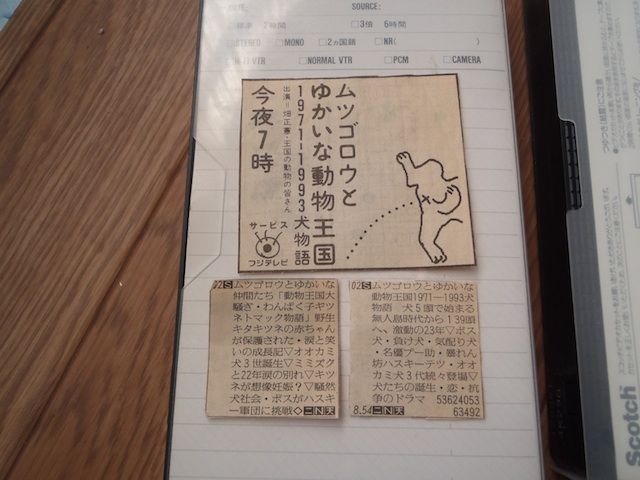 SOURCE:
□標準 2時間 □3倍 6時間
□STEREO □MONO □2ヵ国語 □NR( )
VTR □NORMAL VTR □PCM □CAMERA
ムツゴロウと
ゆかいな動物王国
1971―1993犬物語
出演=畑正憲・王国の動物の皆さん
今夜7時
サービス
フジテレビ
02Sムツゴロウとゆかいな
仲間たち「動物王国大
騒ぎ・わんぱく子ギツ
ネトマック物語」野生
キタキツネの赤ちゃん
が保護された・涙と笑
いの成長記▽オオカミ
犬3世誕生▽ミミズク
と22年涙の別れ▽キツ
ネが想像妊娠?▽騒然
犬社会・ボスがハスキ
ー軍団に挑戦◇二N天
02Sムツゴロウとゆかいな
動物王国1971―1993犬
物語 犬5頭で始まる
無人島時代から139頭
へ、激動の23年▽ボス
犬・負け犬・気配り犬
・名優プー助・暴れん
坊ハスキーテツ・オオ
カミ犬3代続々登場▽
犬たちの誕生・恋・抗
争のドラマ 53624053
8.54二N天 63492
Scotch